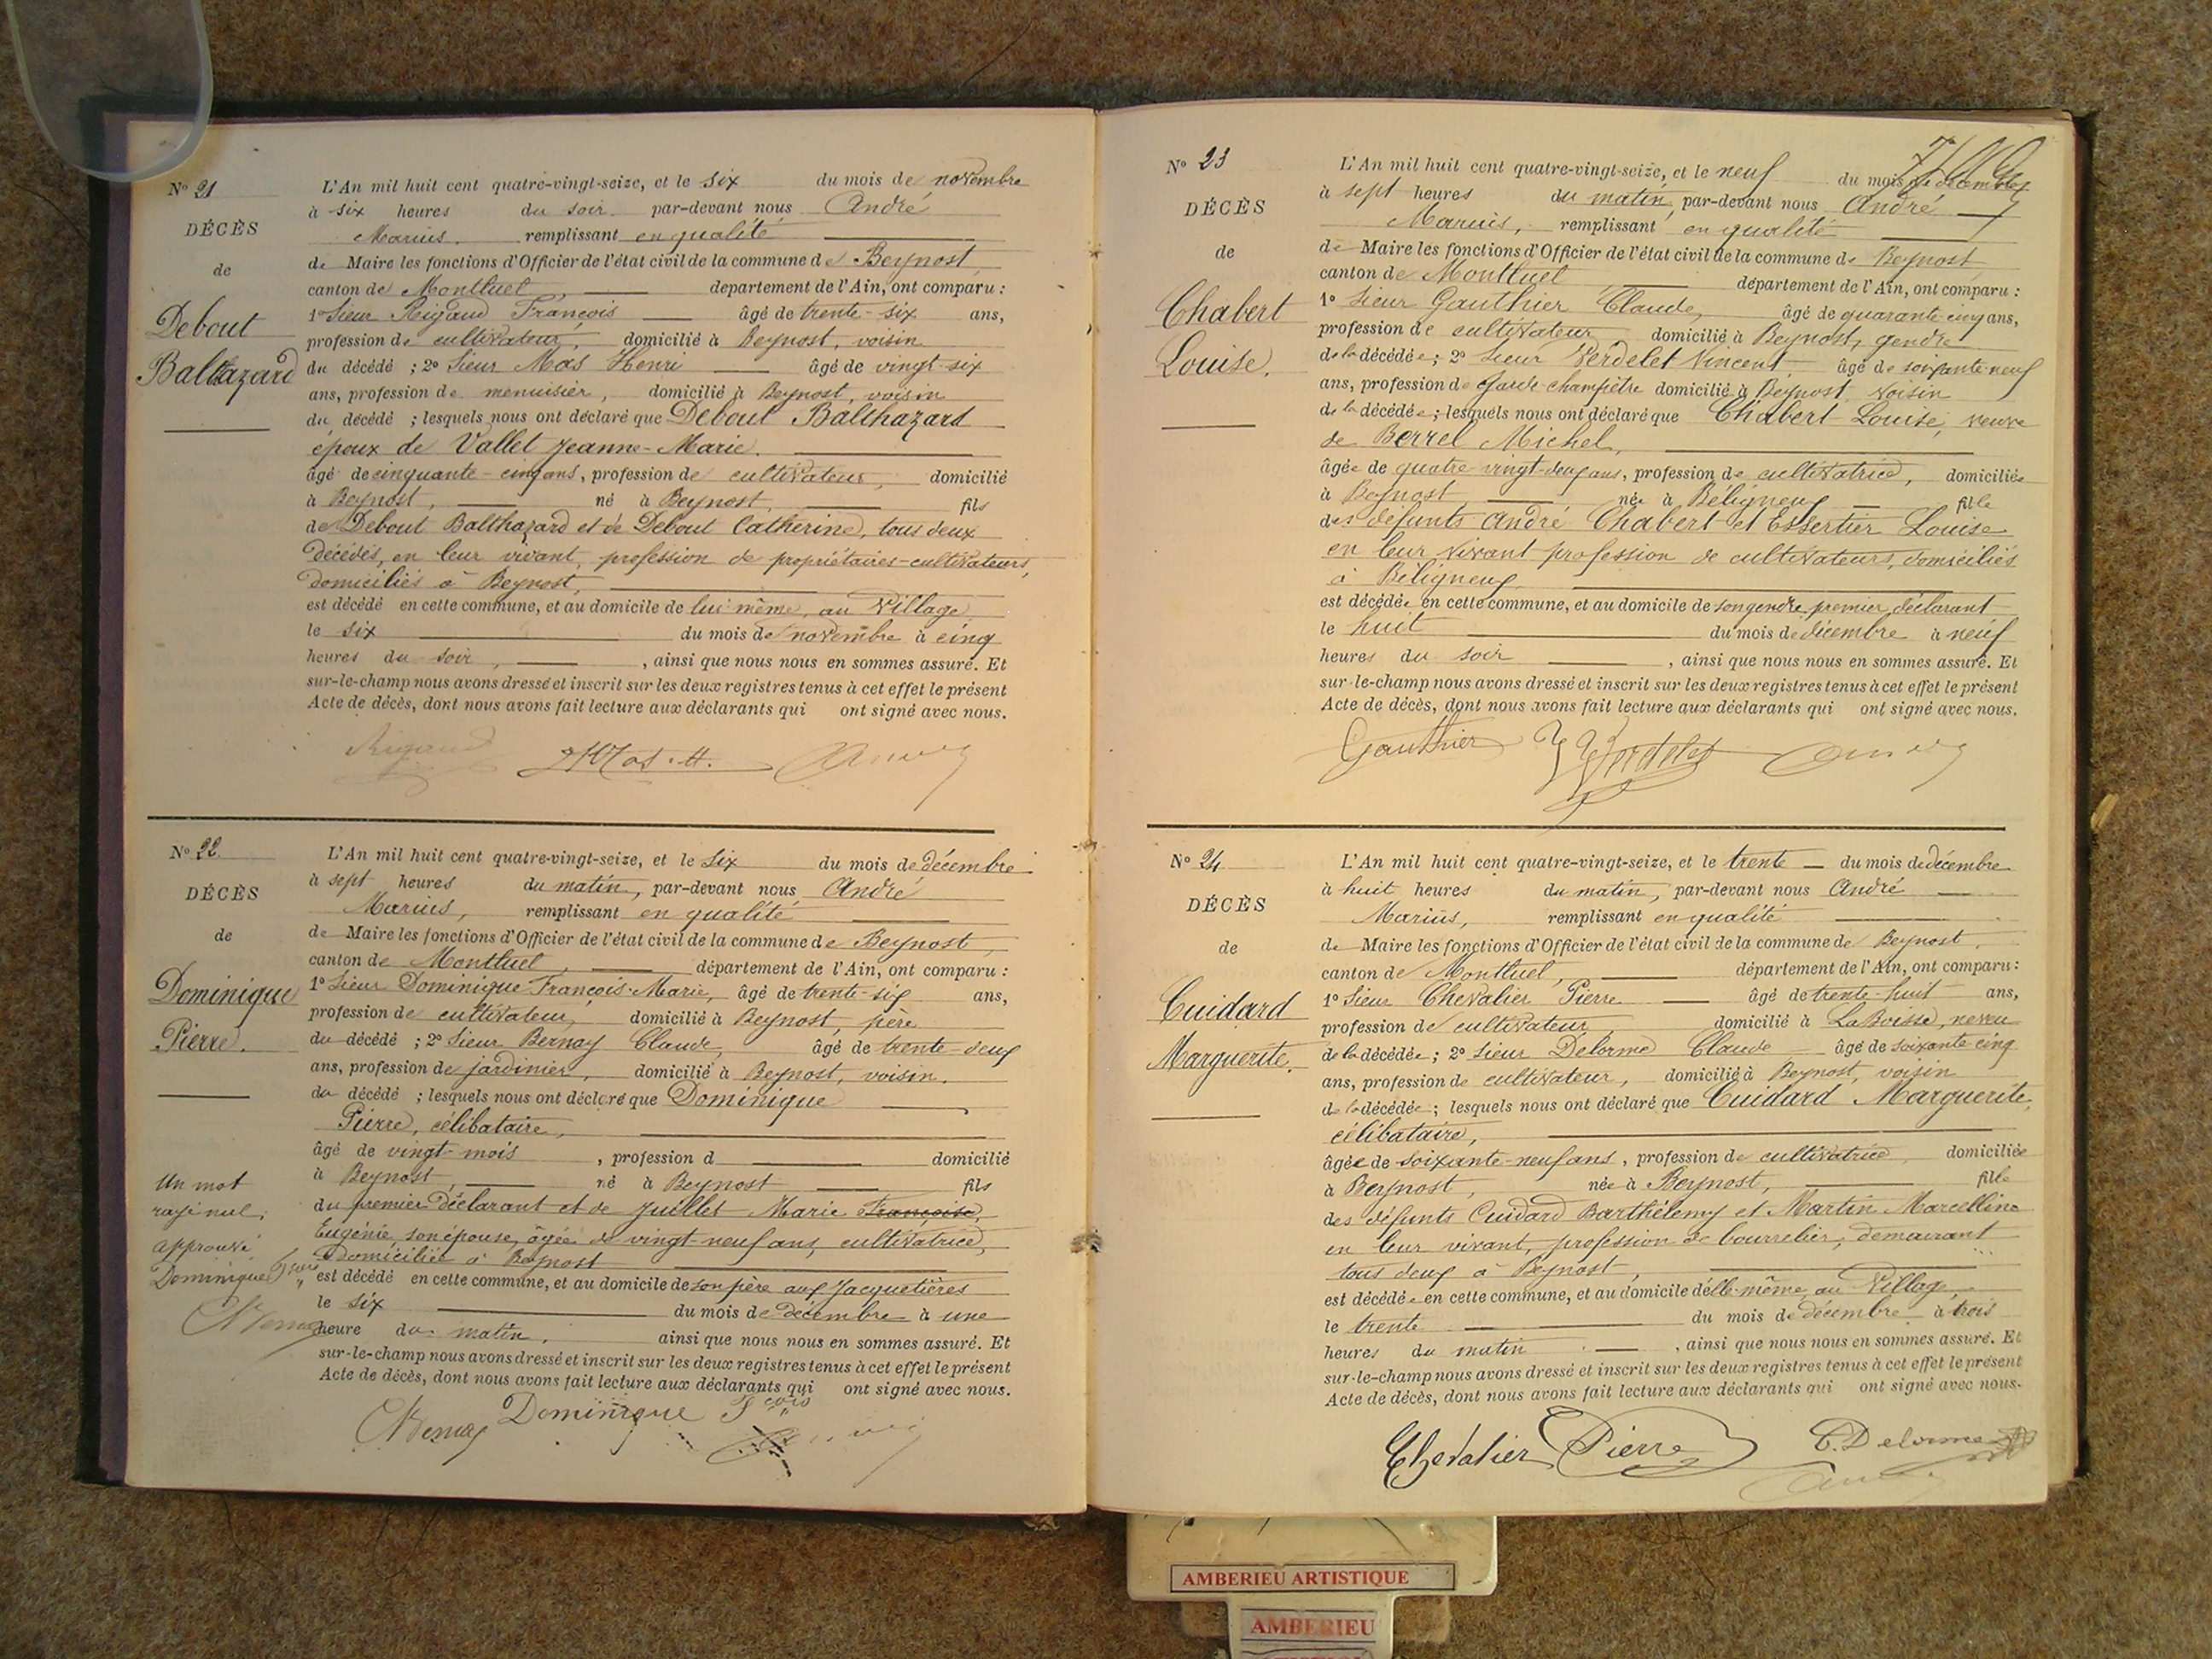 N° 21
DÉCÈS
de
Debout
Baltazard
L'An mil huit cent quatre-vingt-seize, et le six du mois de novembre
à six heures du soir par-devant nous André
Marius, remplissant en qualité
de Maire les fonctions d'Officier de l'état civil de la commune de Beynost,
canton de Montluel, département de l'Ain, ont comparu :
1° Sieur Rigaud François âgé de trente-six ans,
profession de cultivateur, domicilié à Beynost, voisin
du décédé ; 2° Sieur Mas Henri âgé de vingt-six
ans, profession de menuisier, domicilié à Beynost, voisin
du décédé ; lesquels nous ont déclaré que Debout Balthazard
époux de Vallet Jeanne-Marie.
âgé de cinquante-cinq ans, profession de cultivateur, domicilié
à Beynost, né à Beynost, fils
de Debout Balthazard et de Debout Catherine, tous deux
décédés, en leur vivant, profession de propriétaires-cultivateurs,
domiciliés à Beynost,
est décédé en cette commune, et au domicile de lui-même, au Village
le six du mois de novembre à cinq
heures du soir, , ainsi que nous nous en sommes assuré. Et
sur-le-champ nous avons dressé et inscrit sur les deux registres tenus à cet effet le présent
Acte de décès, dont nous avons fait lecture aux déclarants qui ont signé avec nous.
Rigaud Mas. H.
N° 22
DÉCÈS
de
Dominique
Pierre.
Un mot
rayé nul,
approuvé
Dominique
L'An mil huit cent quatre-vingt-seize, et le six du mois de décembre
à sept heures du matin, par-devant nous André
Marius, remplissant en qualité
de Maire les fonctions d'Officier de l'état civil de la commune de Beynost,
canton de Montluel, département de l'Ain, ont comparu :
1° Sieur Dominique François-Marie, âgé de trente-six ans,
profession de cultivateur, domicilié à Beynost, père
du décédé ; 2° Sieur Bernay Claude, âgé de trente-deux
ans, profession de jardinier, domicilié à Beynost, voisin.
du décédé ; lesquels nous ont déclaré que Dominique
Pierre, célibataire,
âgé de vingt-mois , profession d domicilié
à Beynost, né à Beynost fils
du premier déclarant et de Juillet Marie Françoise,
Eugénie, son épouse, âgée de vingt-neuf ans, cultivatrice,
domiciliée à Beynost
est décédé en cette commune, et au domicile de son père aux Jacquetières
le six du mois de décembre à une
heure du matin, ainsi que nous nous en sommes assuré. Et
sur-le-champ nous avons dressé et inscrit sur les deux registres tenus à cet effet le présent
Acte de décès, dont nous avons fait lecture aux déclarants qui ont signé avec nous.
CBernay Dominique
N° 23
DÉCÈS
de
Chabert
Louise.
L'An mil huit cent quatre-vingt-seize, et le neuf du mois de décembre
à sept heures du matin, par-devant nous André
Marius, remplissant en qualité
de Maire les fonctions d'Officier de l'état civil de la commune de Beynost,
canton de Montluel département de l'Ain, ont comparu :
1° Sieur Gauthier Claude, âgé de quarante cinq ans,
profession de cultivateur domicilié à Beynost, gendre
de la décédée ; 2° Sieur Verdelet Vincent, âgé de soixante-neuf
ans, profession de garde-champêtre domicilié à Beynost, voisin
de la décédée ; lesquels nous ont déclaré que Chabert Louise, veuve
de Berrel Michel,
âgée de quatre-vingt-deux ans, profession de cultivatrice, domiciliée
à Beynost, née à Béligneux fille
des défunts André Chabert et Essertier Louise
en leur vivant profession de cultivateurs, domiciliés
à Béligneux
est décédée en cette commune, et au domicile de son gendre premier déclarant
le huit du mois de décembre à neuf
heures du soir , ainsi que nous nous en sommes assuré. Et
sur-le-champ nous avons dressé et inscrit sur les deux registres tenus à cet effet le présent
Acte de décès, dont nous avons fait lecture aux déclarants qui ont signé avec nous.
Gauthier Verdelet
N° 24
DÉCÈS
de
Cuidard
Marguerite.
L'An mil huit cent quatre-vingt-seize, et le trente du mois de décembre
à huit heures du matin, par-devant nous André
Marius, remplissant en qualité
de Maire les fonctions d'Officier de l'état civil de la commune de Beynost,
canton de Montluel, département de l'Ain, ont comparu :
1° Sieur Chevalier Pierre âgé de trente-huit ans,
profession de cultivateur, domicilié à La Boisse, neveu
de la décédée ; 2° Sieur Delorme Claude âgé de soixante cinq
ans, profession de cultivateur, domicilié à Beynost, voisin
de la décédée ; lesquels nous ont déclaré que Cuidard Marguerite,
célibataire,
âgée de soixante-neuf ans, profession de cultivatrice domiciliée
à Beynost, née à Beynost, fille
des défunts Cuidard Barthélemy et Martin Marcelline
en leur vivant, profession de bourrelier, demeurant
tous deux à Beynost,
est décédée en cette commune, et au domicile d'elle-même, au Village,
le trente du mois de décembre à trois
heures du matin , ainsi que nous nous en sommes assuré. Et
sur-le-champ nous avons dressé et inscrit sur les deux registres tenus à cet effet le présent
Acte de décès, dont nous avons fait lecture aux déclarants qui ont signé avec nous.
Chevalier Pierre C. Delorme
AMBERIEU ARTISTIQUE
AMBERIEU